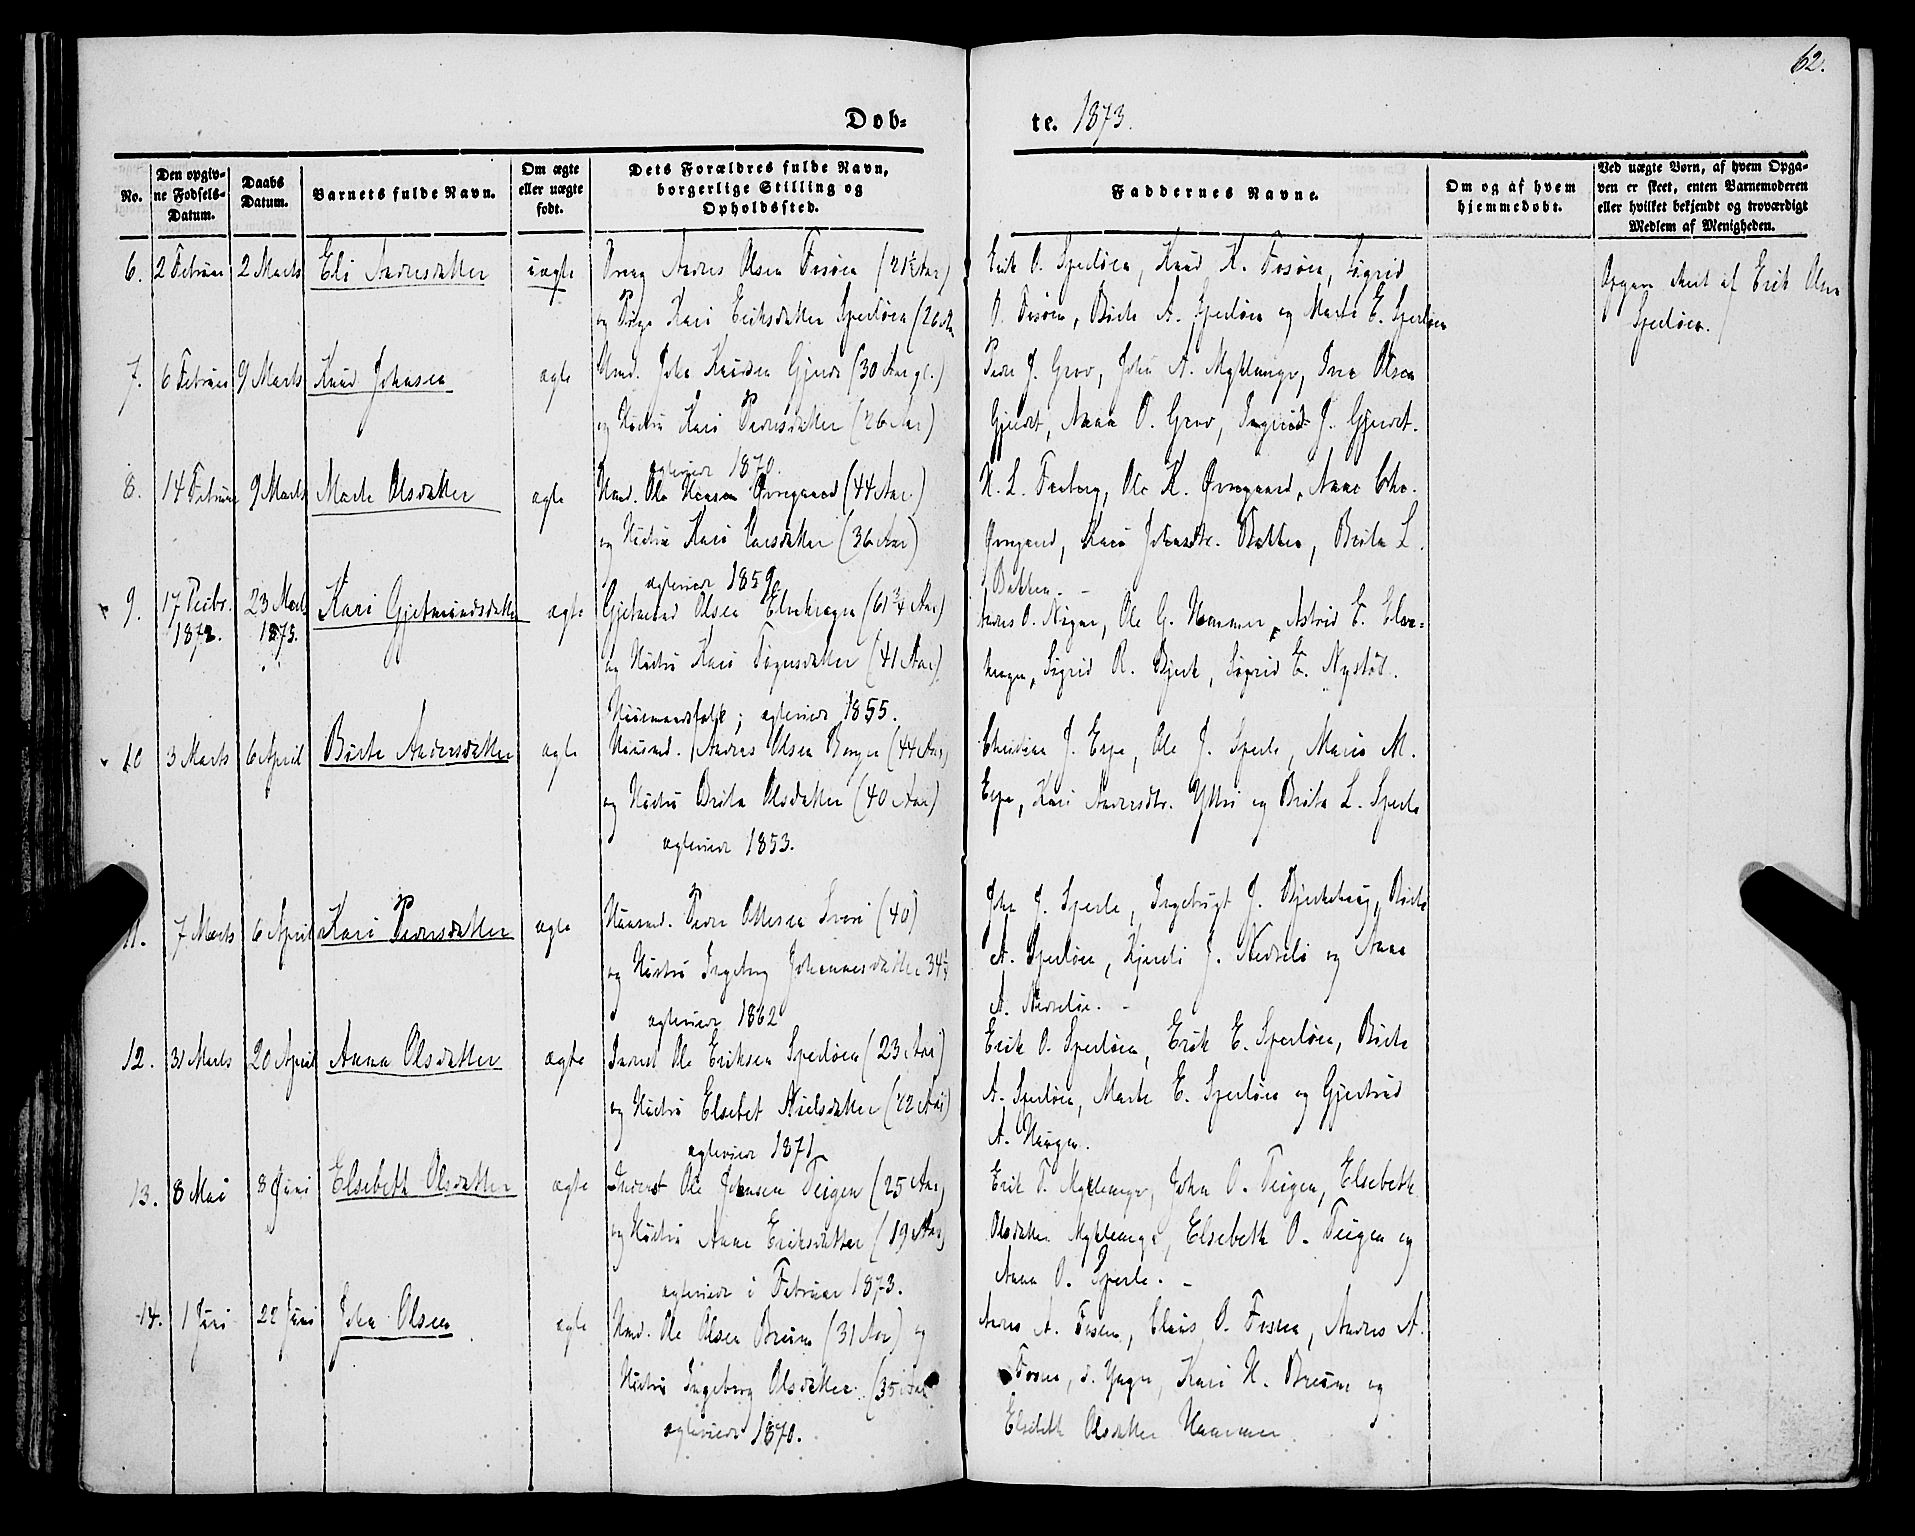 62.
Døb-
te. 1873.
No.
Den opgiv-
ne Fødsels-
Datum.
Daabs
Datum.
Barnets fulde Navn.
Om ægte
eller uægte
født.
Dets Forældres fulde Navn,
borgerlige Stilling og
Opholdssted.
Faddernes Navne.
Om og af hvem
hjemmedøbt.
Ved uægte Børn, af hvem Opga-
ven er skeet, enten Barnemoderen
eller hvilket bekjendt og troværdigt
Medlem af Menigheden.
6. 2 Februar 2 Marts Eli Andersdatter uægte Dreng Andres Olsen Fosøen (21½ Aar)
og Pige Kari Eriksdatter Sperløen (26 Aar
Erik O. Sperløen, Knud K. Fosøen, Sigrid
O. Fosøen, Birte A. Sperløen og Marte E. Sperløen
Opgave skeet af Erik Olsen
Sperløen.
7. 6 Februar 9 Marts Knud Johnsen ægte Gmd. John Knudsen Gjerde (30 Aar gl.)
og Hustru Kari Pedersdatter (26 Aar)
ægteviede 1870.
Peder J. Grov, John A. Myklunge, Iver Olsen
Gjerdet, Anna O. Grov, Ingrid J. Gjerdet.
8. 14 Februar 9 Marts Marte Olsdatter ægte Gmd. Ole Hansen Øvregaard (44 Aar.)
og Hustru Kari Larsdatter (36 Aar)
ægteviede 1859
H. L. Øvregaard, Anne
Øvregaard, Kari Johnsdtr. Bakken, Birte L.
Bakken. -
9. 17 Decbr. 1872. 23 Marts 1873. Kari Gjertmundsdatter ægte Gjertmund Olsen Elvekragen (61¾ Aar)
og Hustru Kari (41 Aar)
Huusmandsfolk; ægteviede 1855.
Andres O. Ole G. Hammer, Astrid E. Elve-
kragen, Sigrid R. Bjerk, Sigrid E. Nystøl.
10 3 Marts 6 April Birte Andersdatter ægte Huusmd. Andres Olsen (44 Aar)
og Hustru Brita Olsdatter (40 Aar)
ægteviede 1853.
Christian J. Espe, Ole J. Sperle, Marie M.
Espe, Kari Andersdtr. Yttri og Brita L. Sperle
11. 7 Marts 6 April Kari Pedersdatter ægte Huusmd. Peder Ottesen (40)
og Hustru Ingeborg Johannesdatter 34½
ægteviede 1862
John J. Sperle, Ingebrigt J. Bjerkehaug, Birte
A. Sperløen, Kjersti J. Nedrelø og Anna
A. Nedreløe. -
12. 31 Marts 20 April Anna Olsdatter ægte Inderst Ole Eriksen Sperløen (23 Aar)
og Hustru Elsebet Nielsdatter (22 Aar)
ægteviede 1871
Erik O. Sperløen, Erik E. Sperløen, Birte
A. Sperløen, Marte E. Sperløen og Gjertrud
A. Haugen.
13. 8 Mai 8 Juni Elsebeth Olsdatter ægte Inderst Ole Johnsen Teigen (25 Aar)
og Hustru Anne Eriksdatter (19 Aar)
ægteviede i Februar 1873.
Erik T. Myklunge, John O. Teigen, Elsebeth
Olsdatter Myklunge, Elsebeth O. Teigen og
Anna O. Sperle. -
14. 1 Juni 22 Juni John Olsen ægte Gmd. Ole Olsen Bruun (31 Aar) og
Hustru Ingeborg Olsdatter (35 Aar
ægteviede 1870.
Andres A. Fosøen, Claus O. Fosøen, Andres A.
Fosøen, d. Yngre, Kari H. Bruun og
Elsebeth Olsdatter Hammer.